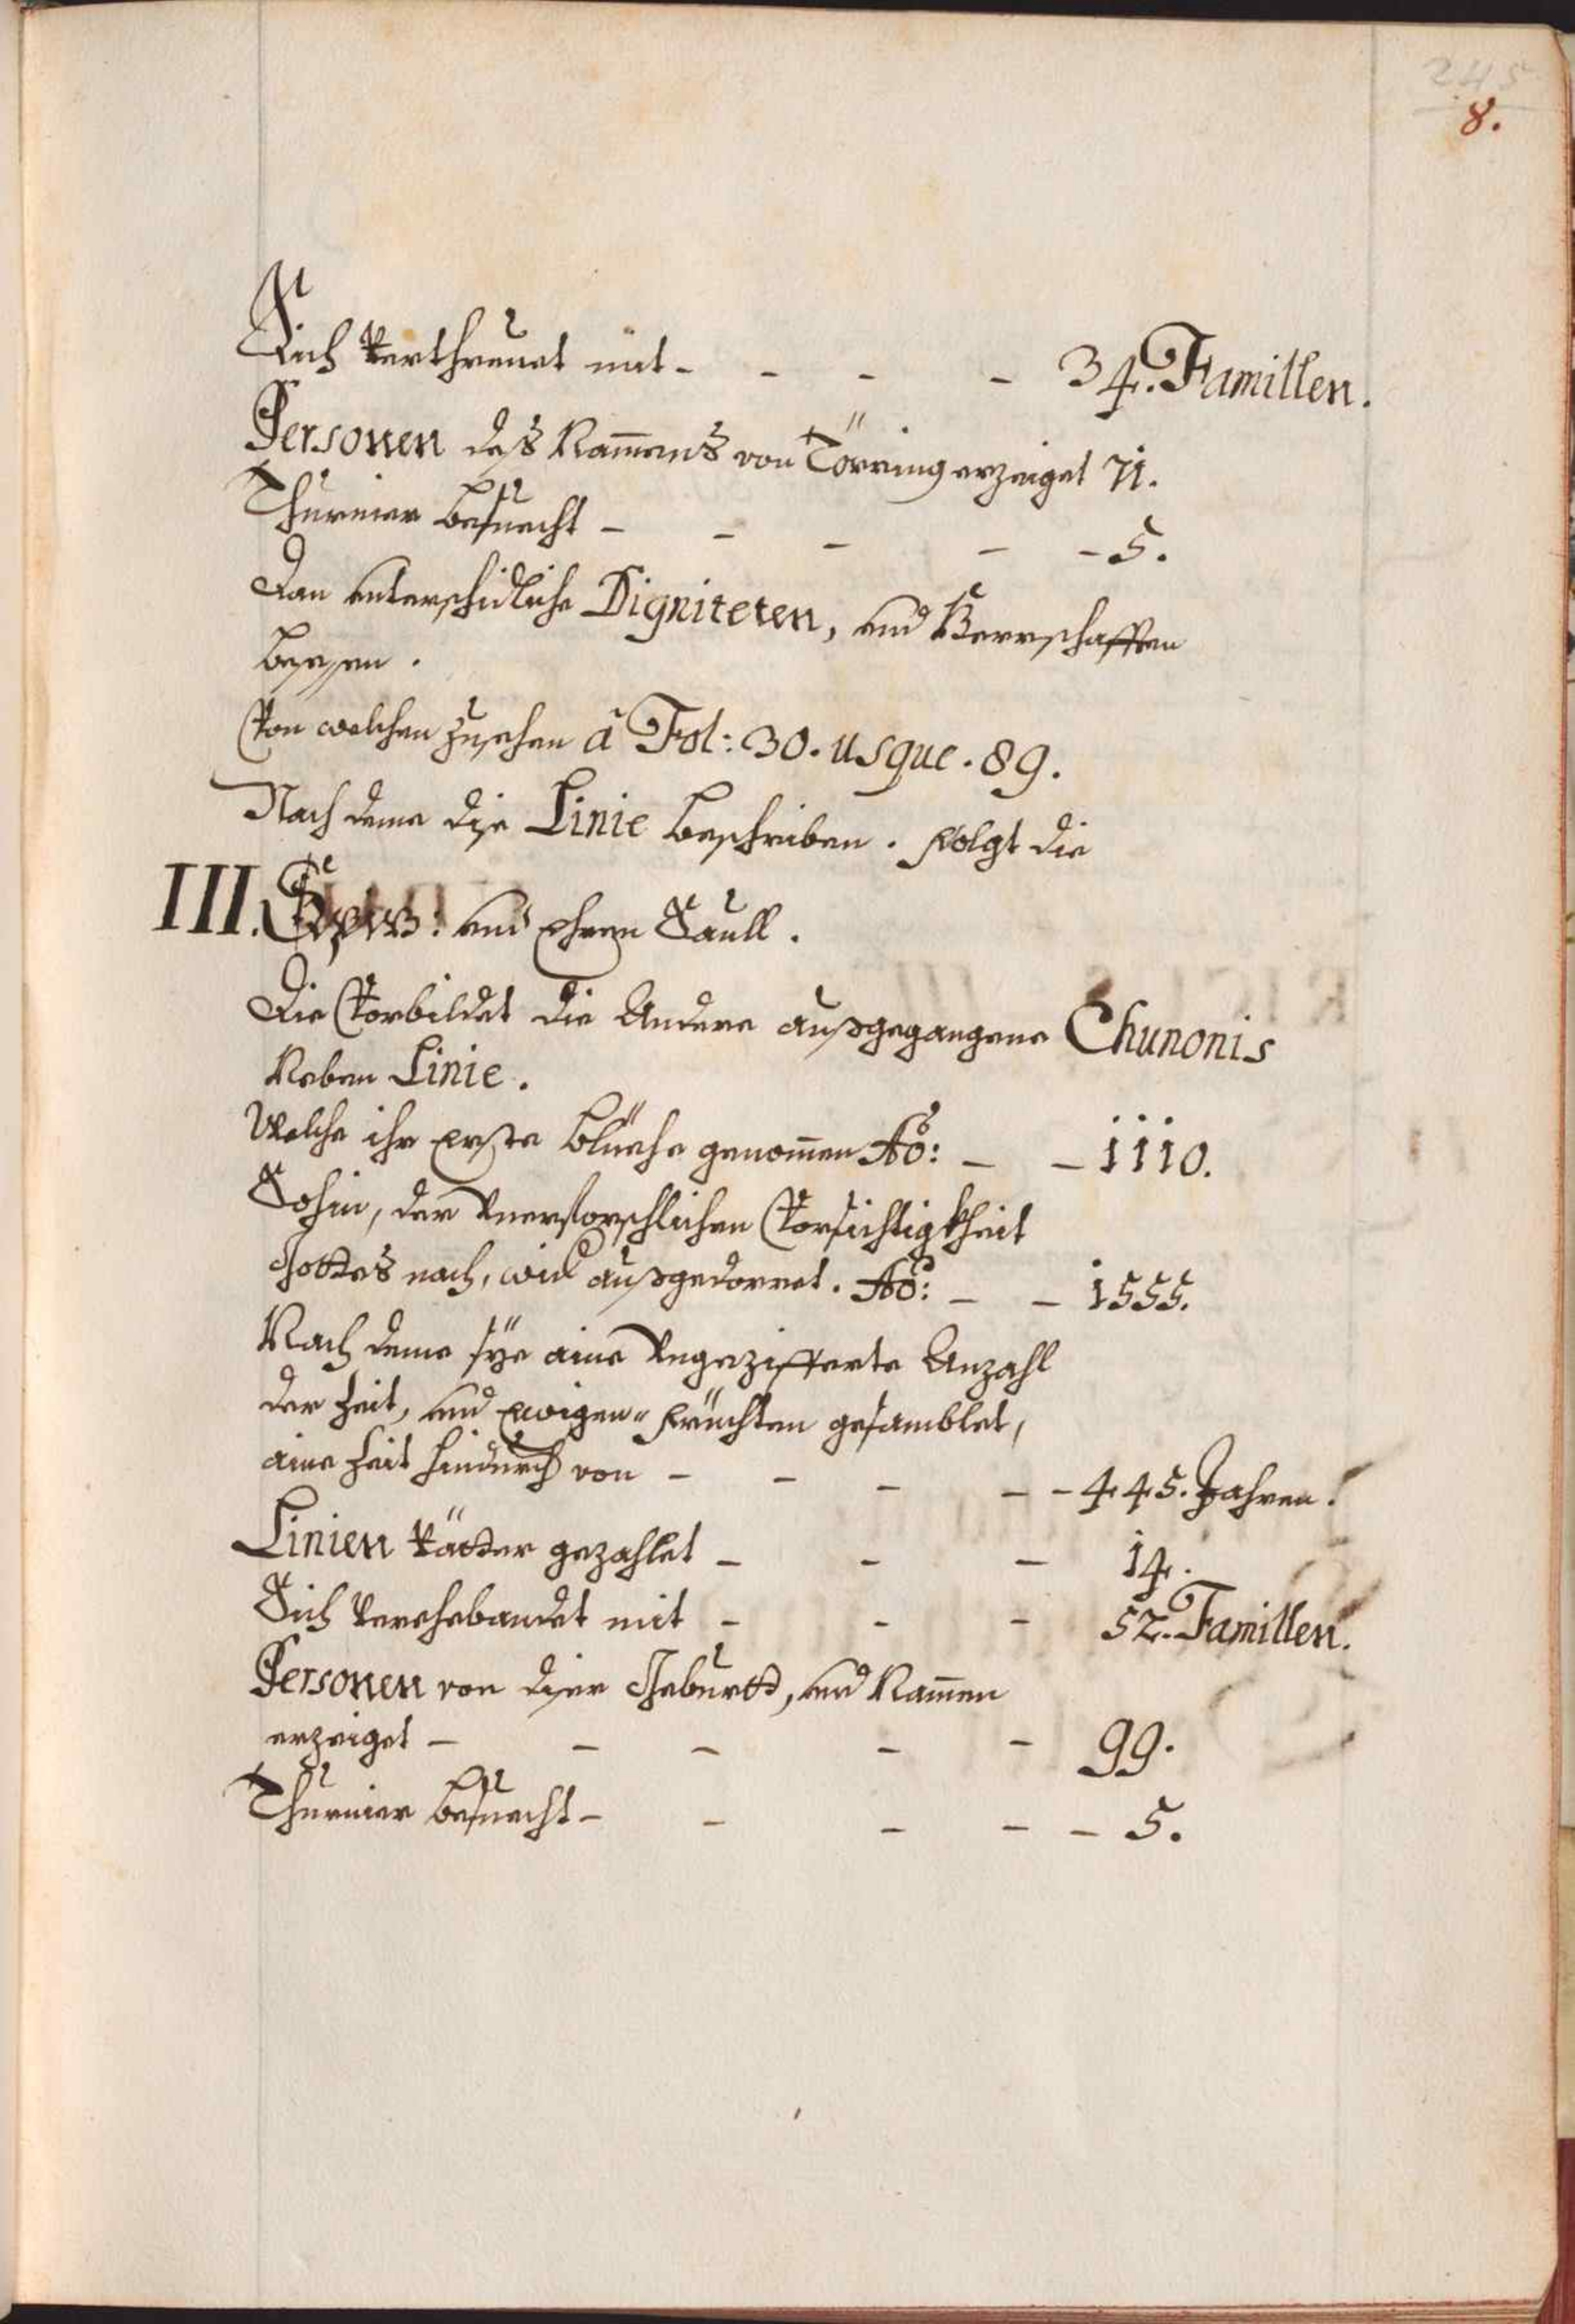 245
8.
Sich Verthreuet mit - - - - 34. Famillen.
Personen deß Nam̄ens von Törring erzeiget 71.
Thurnier besuecht - - - - - 5.
Dan unterschidliche Digniteten, und Herrschafften
besessen.
Von welchen zusehen à Fol: 30. usque. 89.
Nach deme dise Linie beschriben. Folgt die
III. und Ehren Saull.
Die Vorbildet die Andere außgegangene Chunonis
Neben Linie.
Welche ihr Erste Blüehe genom̄en Ao: - - 1110.
Sohin, der Vnerforschlichen Vorsichtigkheit
Gottes nach, wid außgedorret. Ao: - - 1555.
Nach deme sÿe aine Vngezifferte Anzahl
der Zeit, und Ewigen- Früchten gesamblet,
aine Zeit hindurch von - - - - - 445. Jahren.
Linien Vätter gezahlet - - - 14.
Sich Verehebandet mit - - - 52. Famillen.
Personen von diser Geburtt, und Nam̄en
erzeiget - - - - - 99.
Thurnier besuecht - - - - - 5.